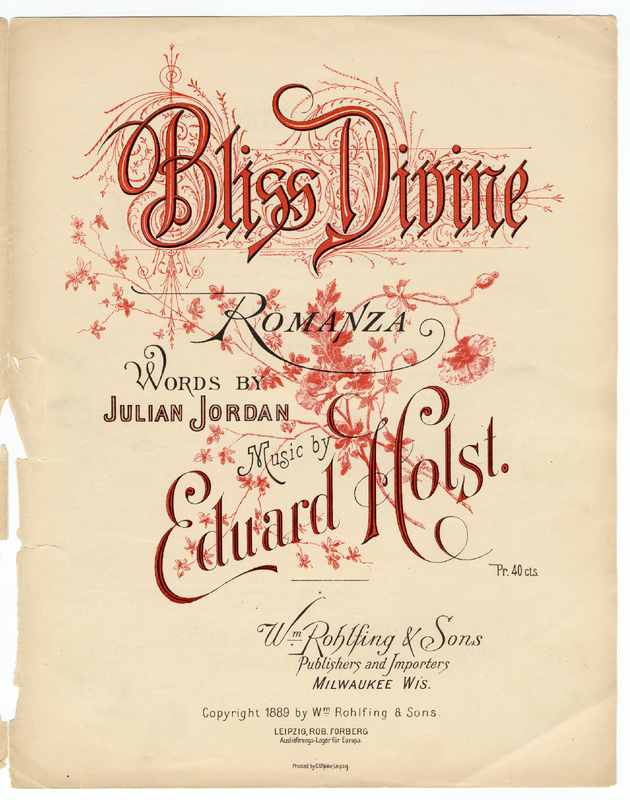 Bliss Divine
Romanza
Words by
Julian Jordan
Music by
Eduard Holst.
Pr. 40 cts.
Wm. Rohlfing & Sons
Publishers and Importers
Milwaukee Wis.
Copyright 1889 by Wm. Rohlfing & Sons.
LEIPZIG, ROB. FORBERG
Auslieferungs-Lager für Europa.
Printed by C.G. Röder, Leipzig